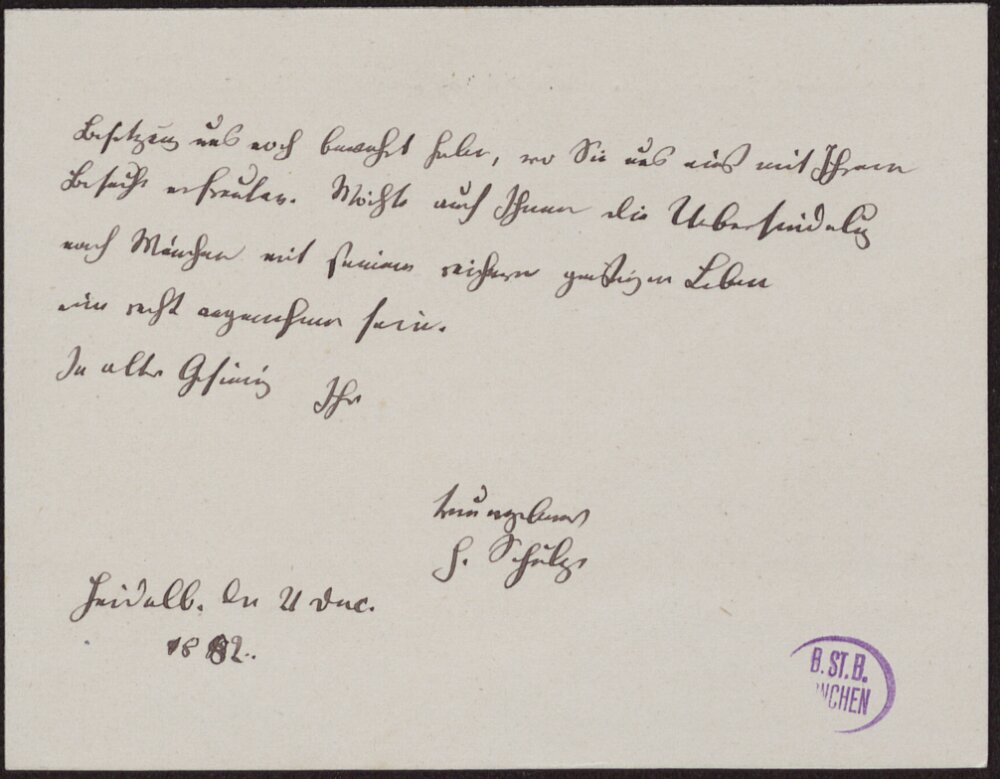 Besitzung uns noch bewahrt haben, wo Sie uns einst mit Ihrem
Besuche erfreuten. Möchte auch Ihnen die Uebersiedelung
nach München mit seinem reichern geistigen Leben
eine recht angenehme sein.
In alter Gesinnung Ihr
treu ergebener
H. Schulze
Heidelb. den 21 Dec.
1882.
B. ST. B.